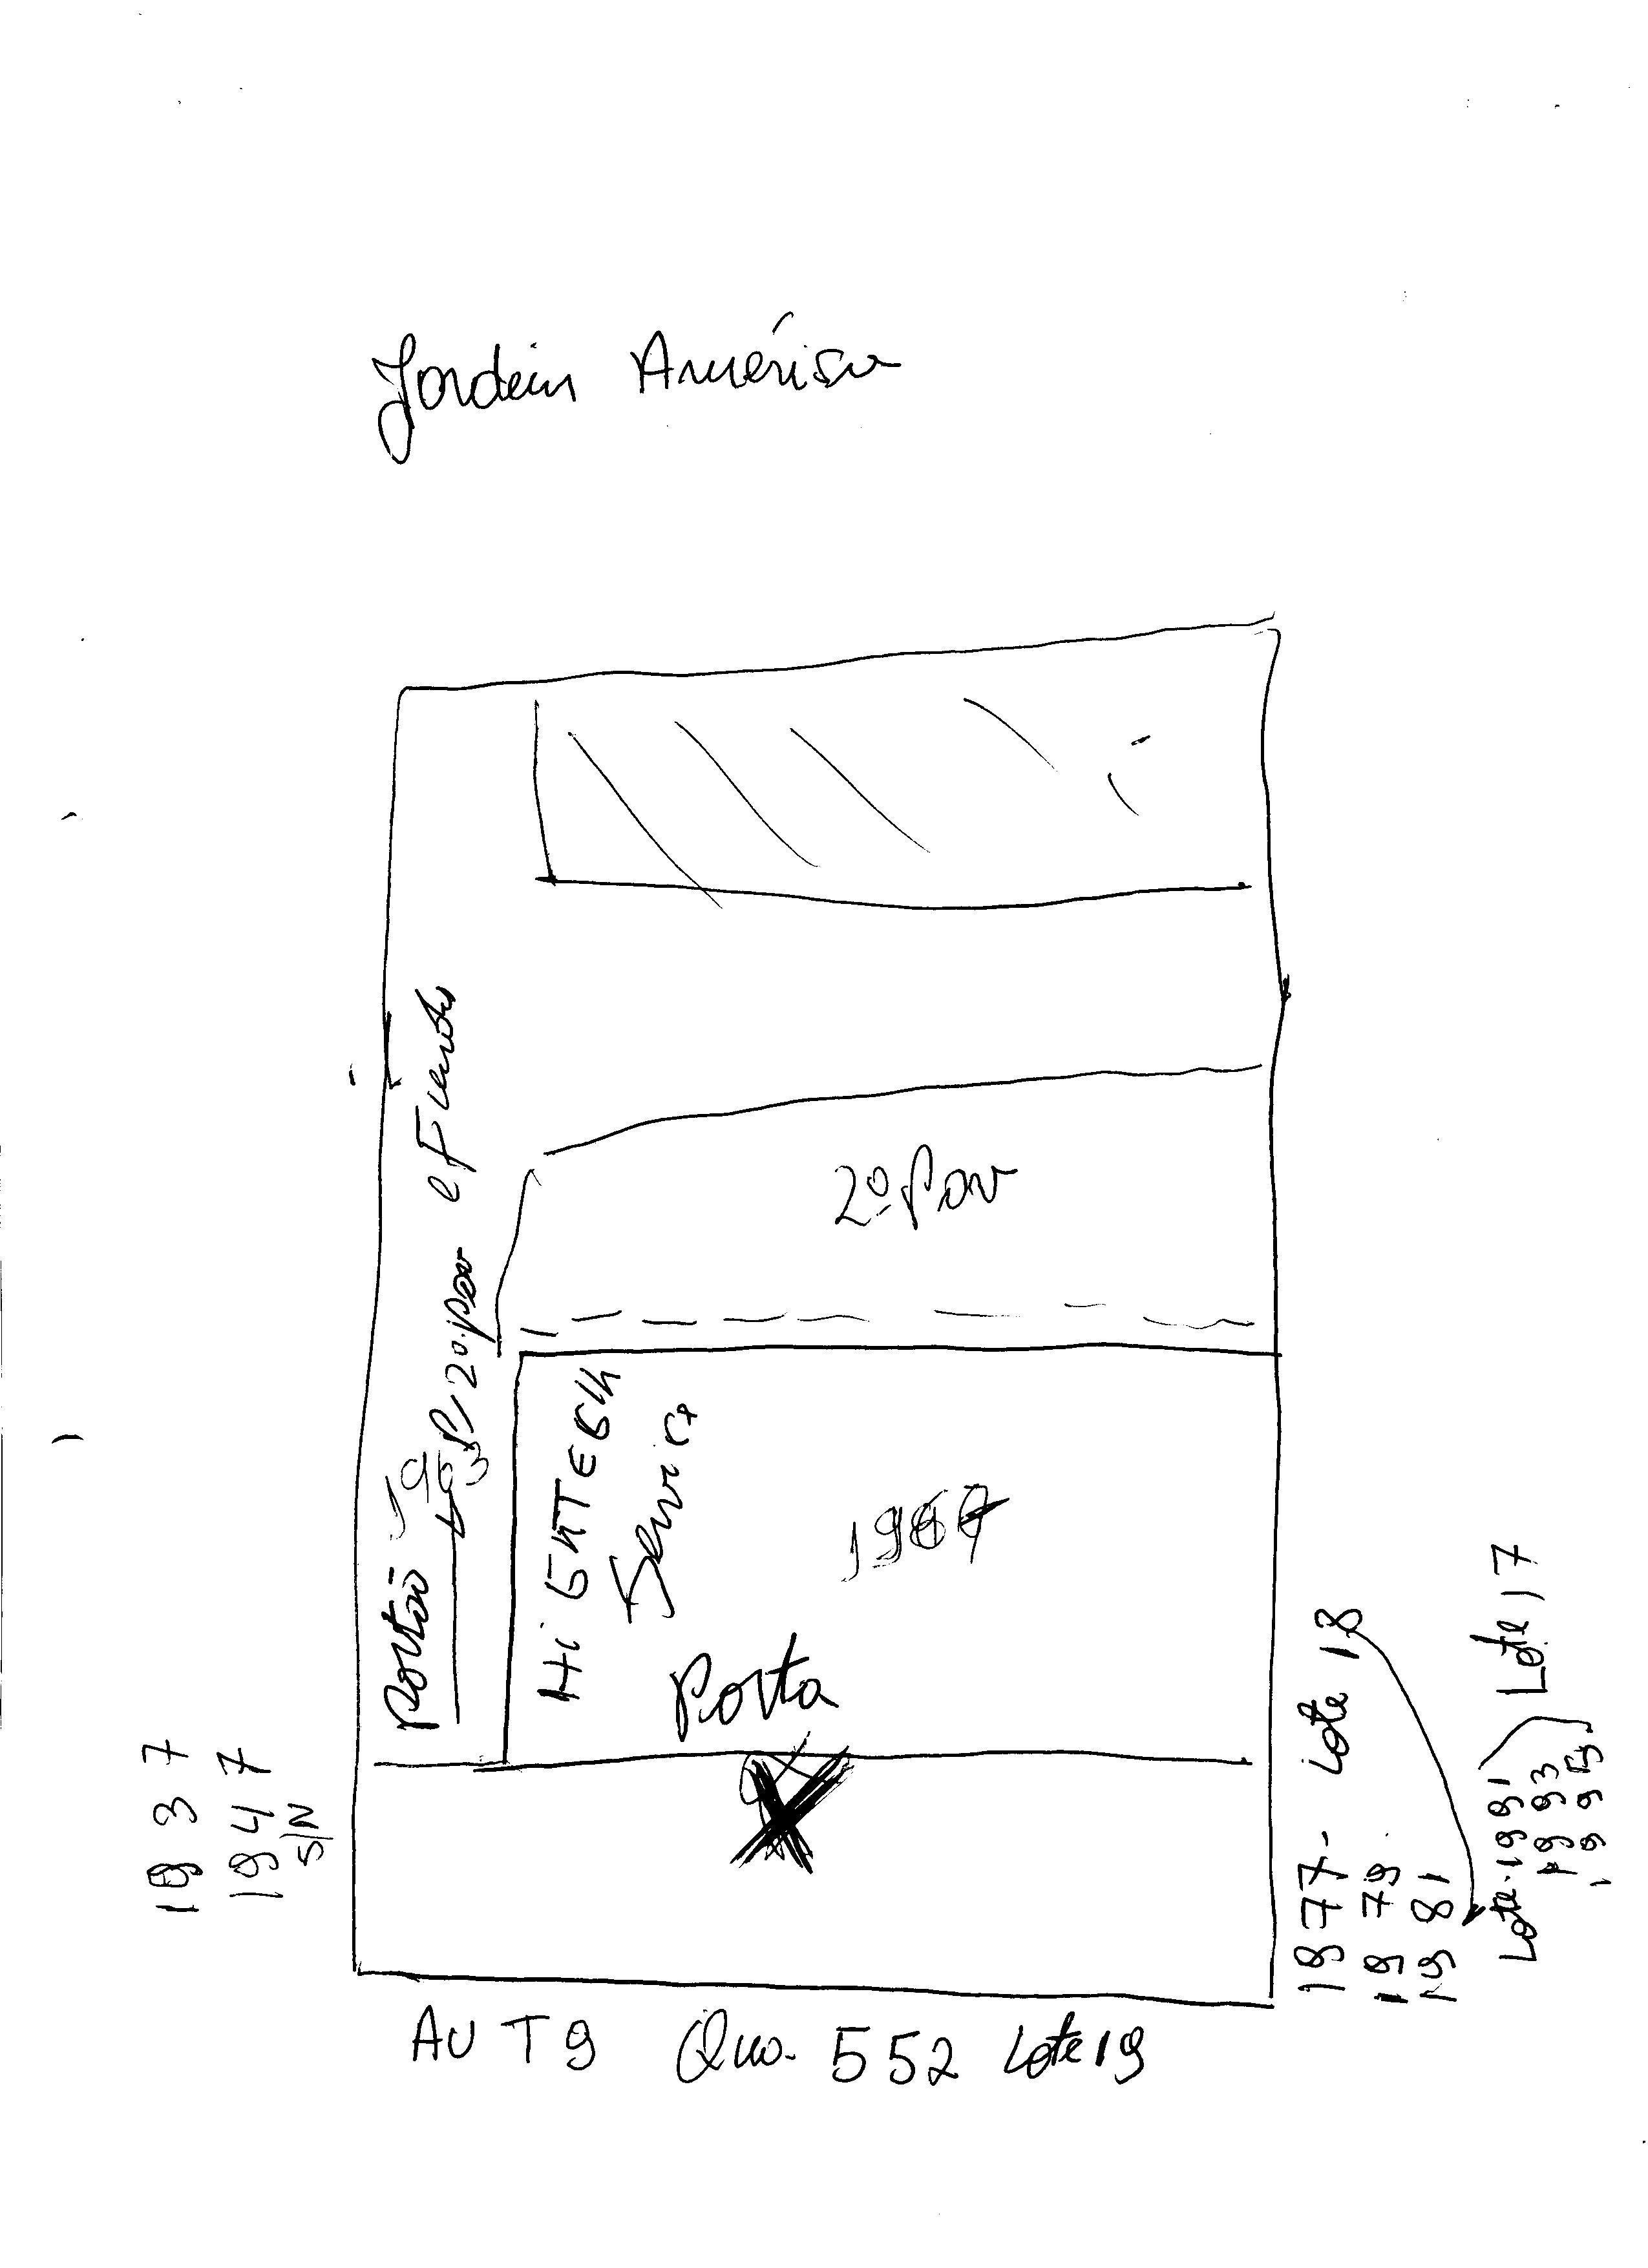 Jardim América
2º Pav
Portão 1963 P/ 2º pav e Fundos
Service
Porta
1937
1947
S/N
1977 - Lote 18
1979
1981
Lote 1991 Lote 17
1993
1995
AV T9 Qua. 552 Lote 19